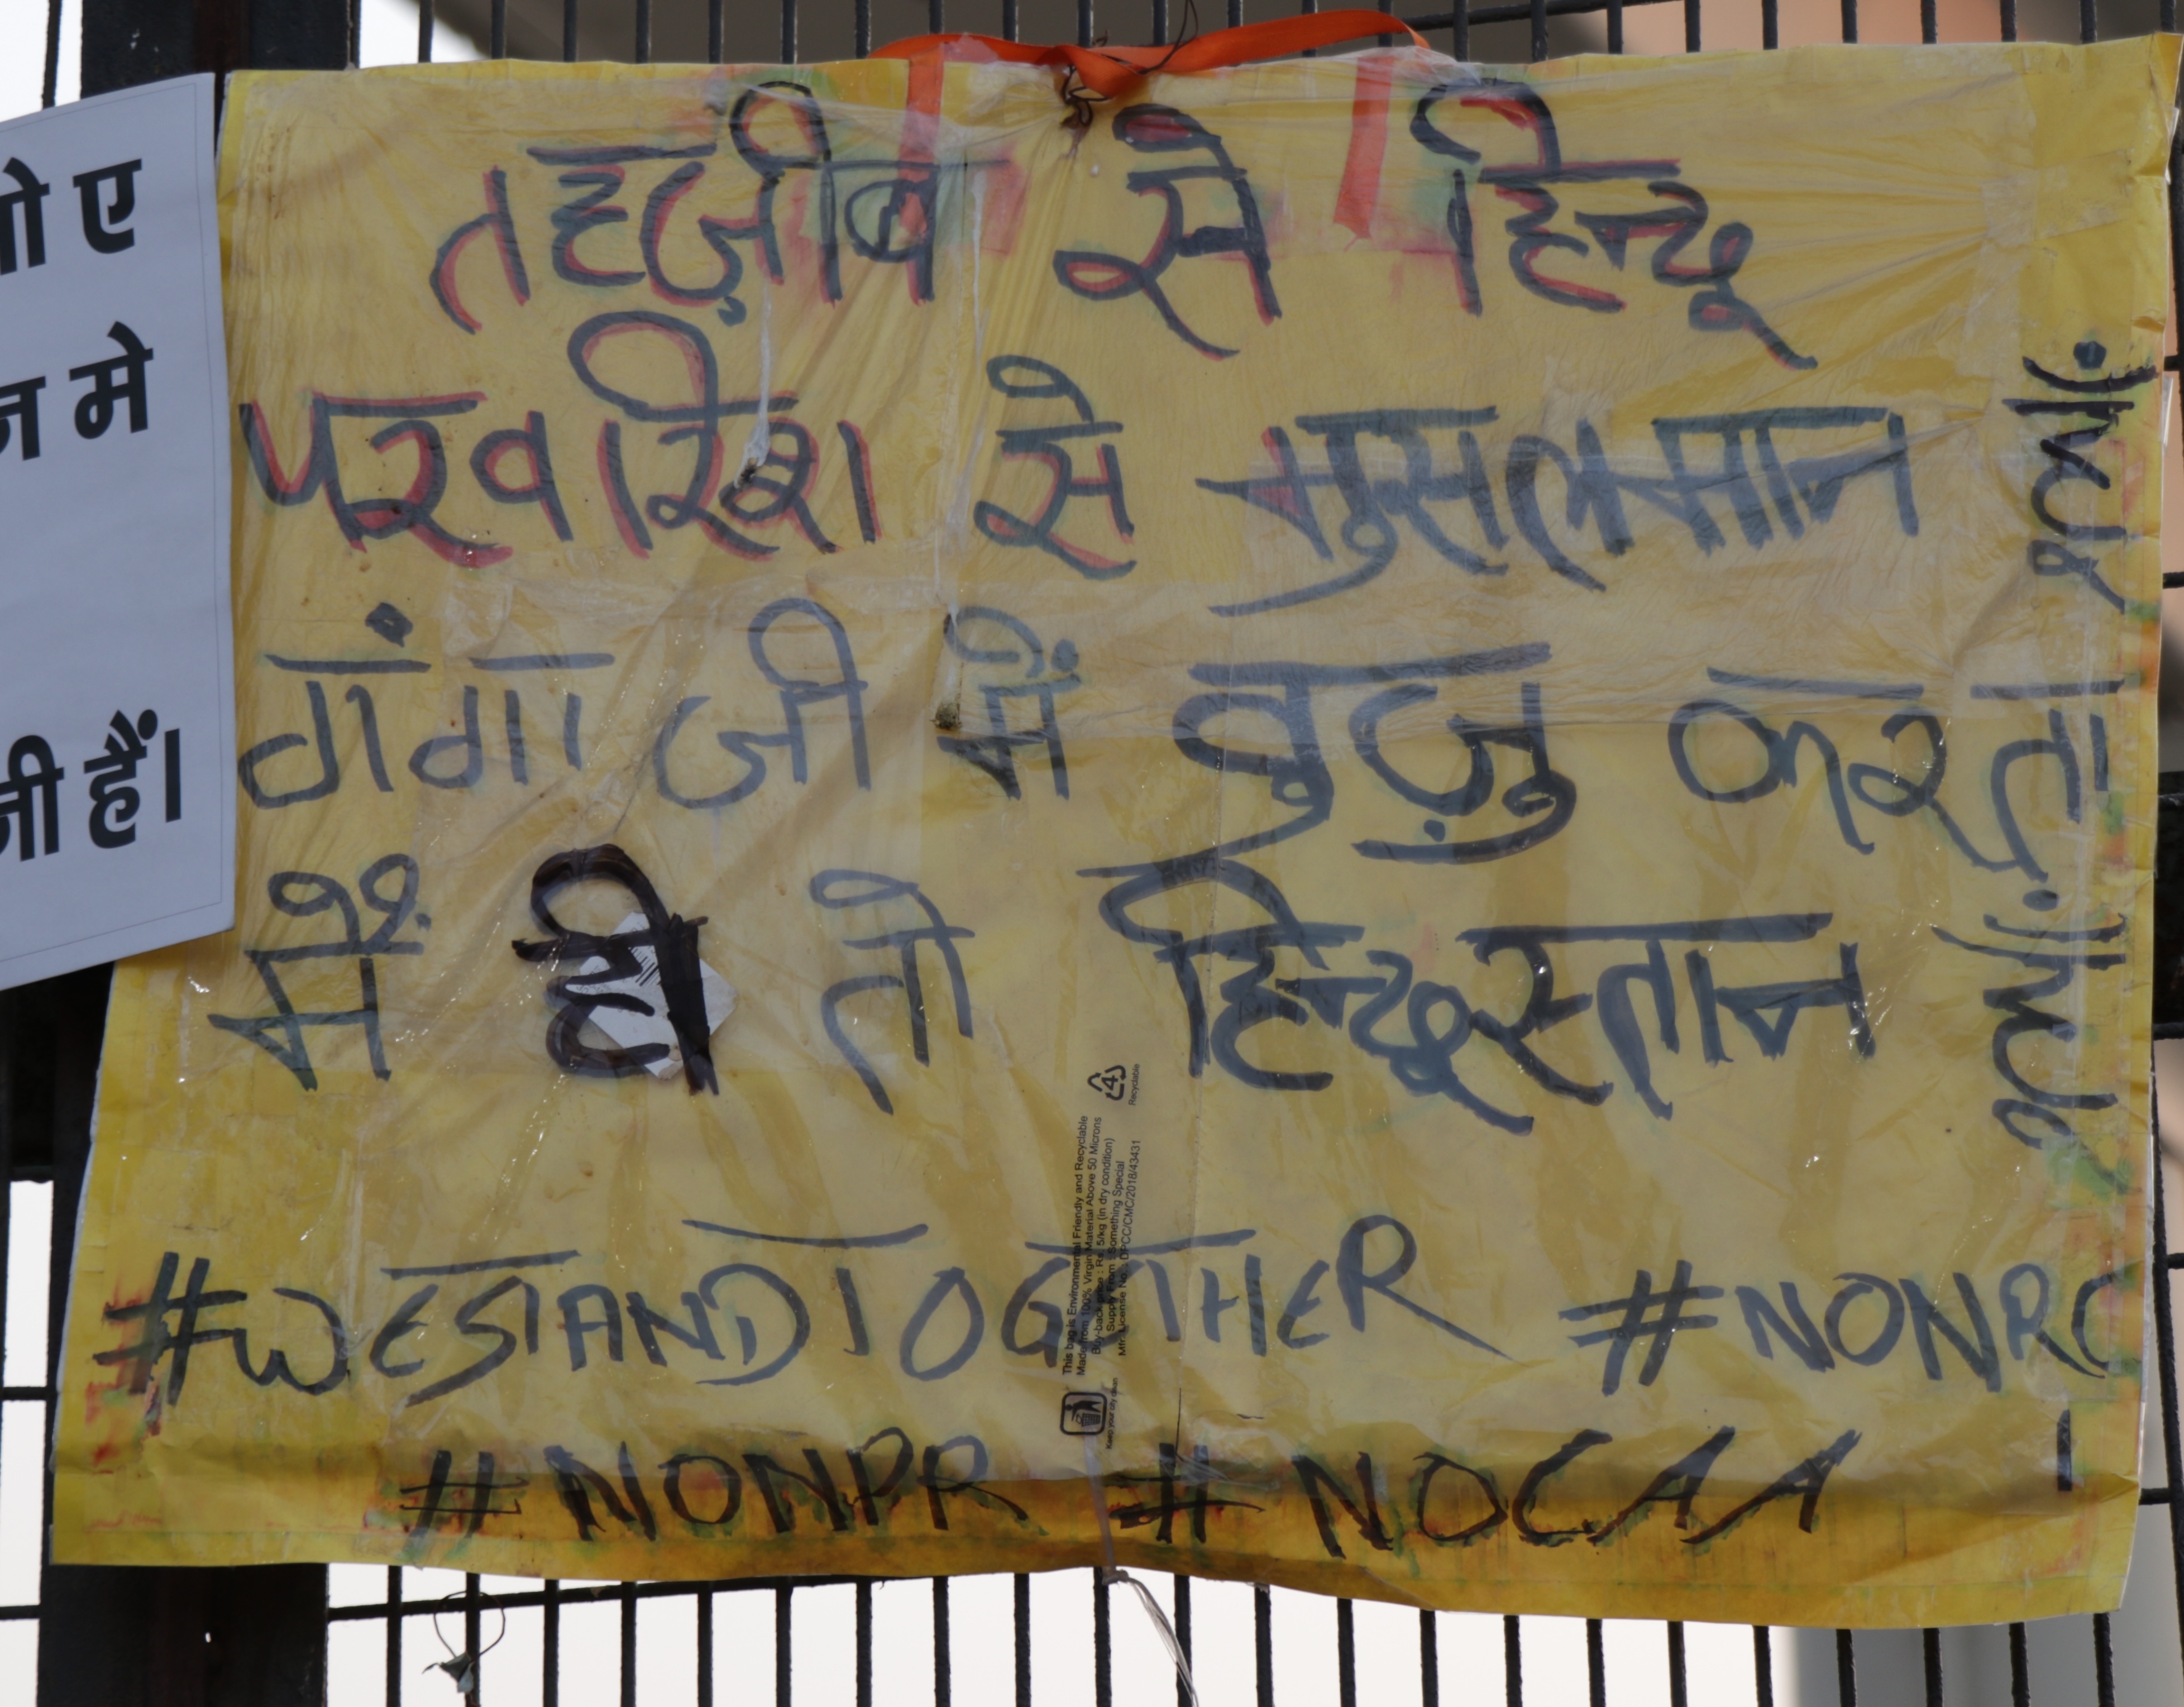 ो ए
न मे
नी हैं।
तहज़ीब से हिन्दू
परवरिश से मुसलमान हूँ
गंगा जी में वुज़ु करता हूँ
मैं ही तो हिन्दूस्तान
#WESTANDTOGETHER #NONRC
#NONPR #NOCAA
This bag is Environmental Friendly and Recyclable
Made from 100% Virgin Material Above 50 Microns
Buy-back price : Rs. 5/kg (in dry condition)
Supply From : Something Special
Mfr. License No. : DPCC/CMC/2018/43431
4
Recyclable
Keep your city clean